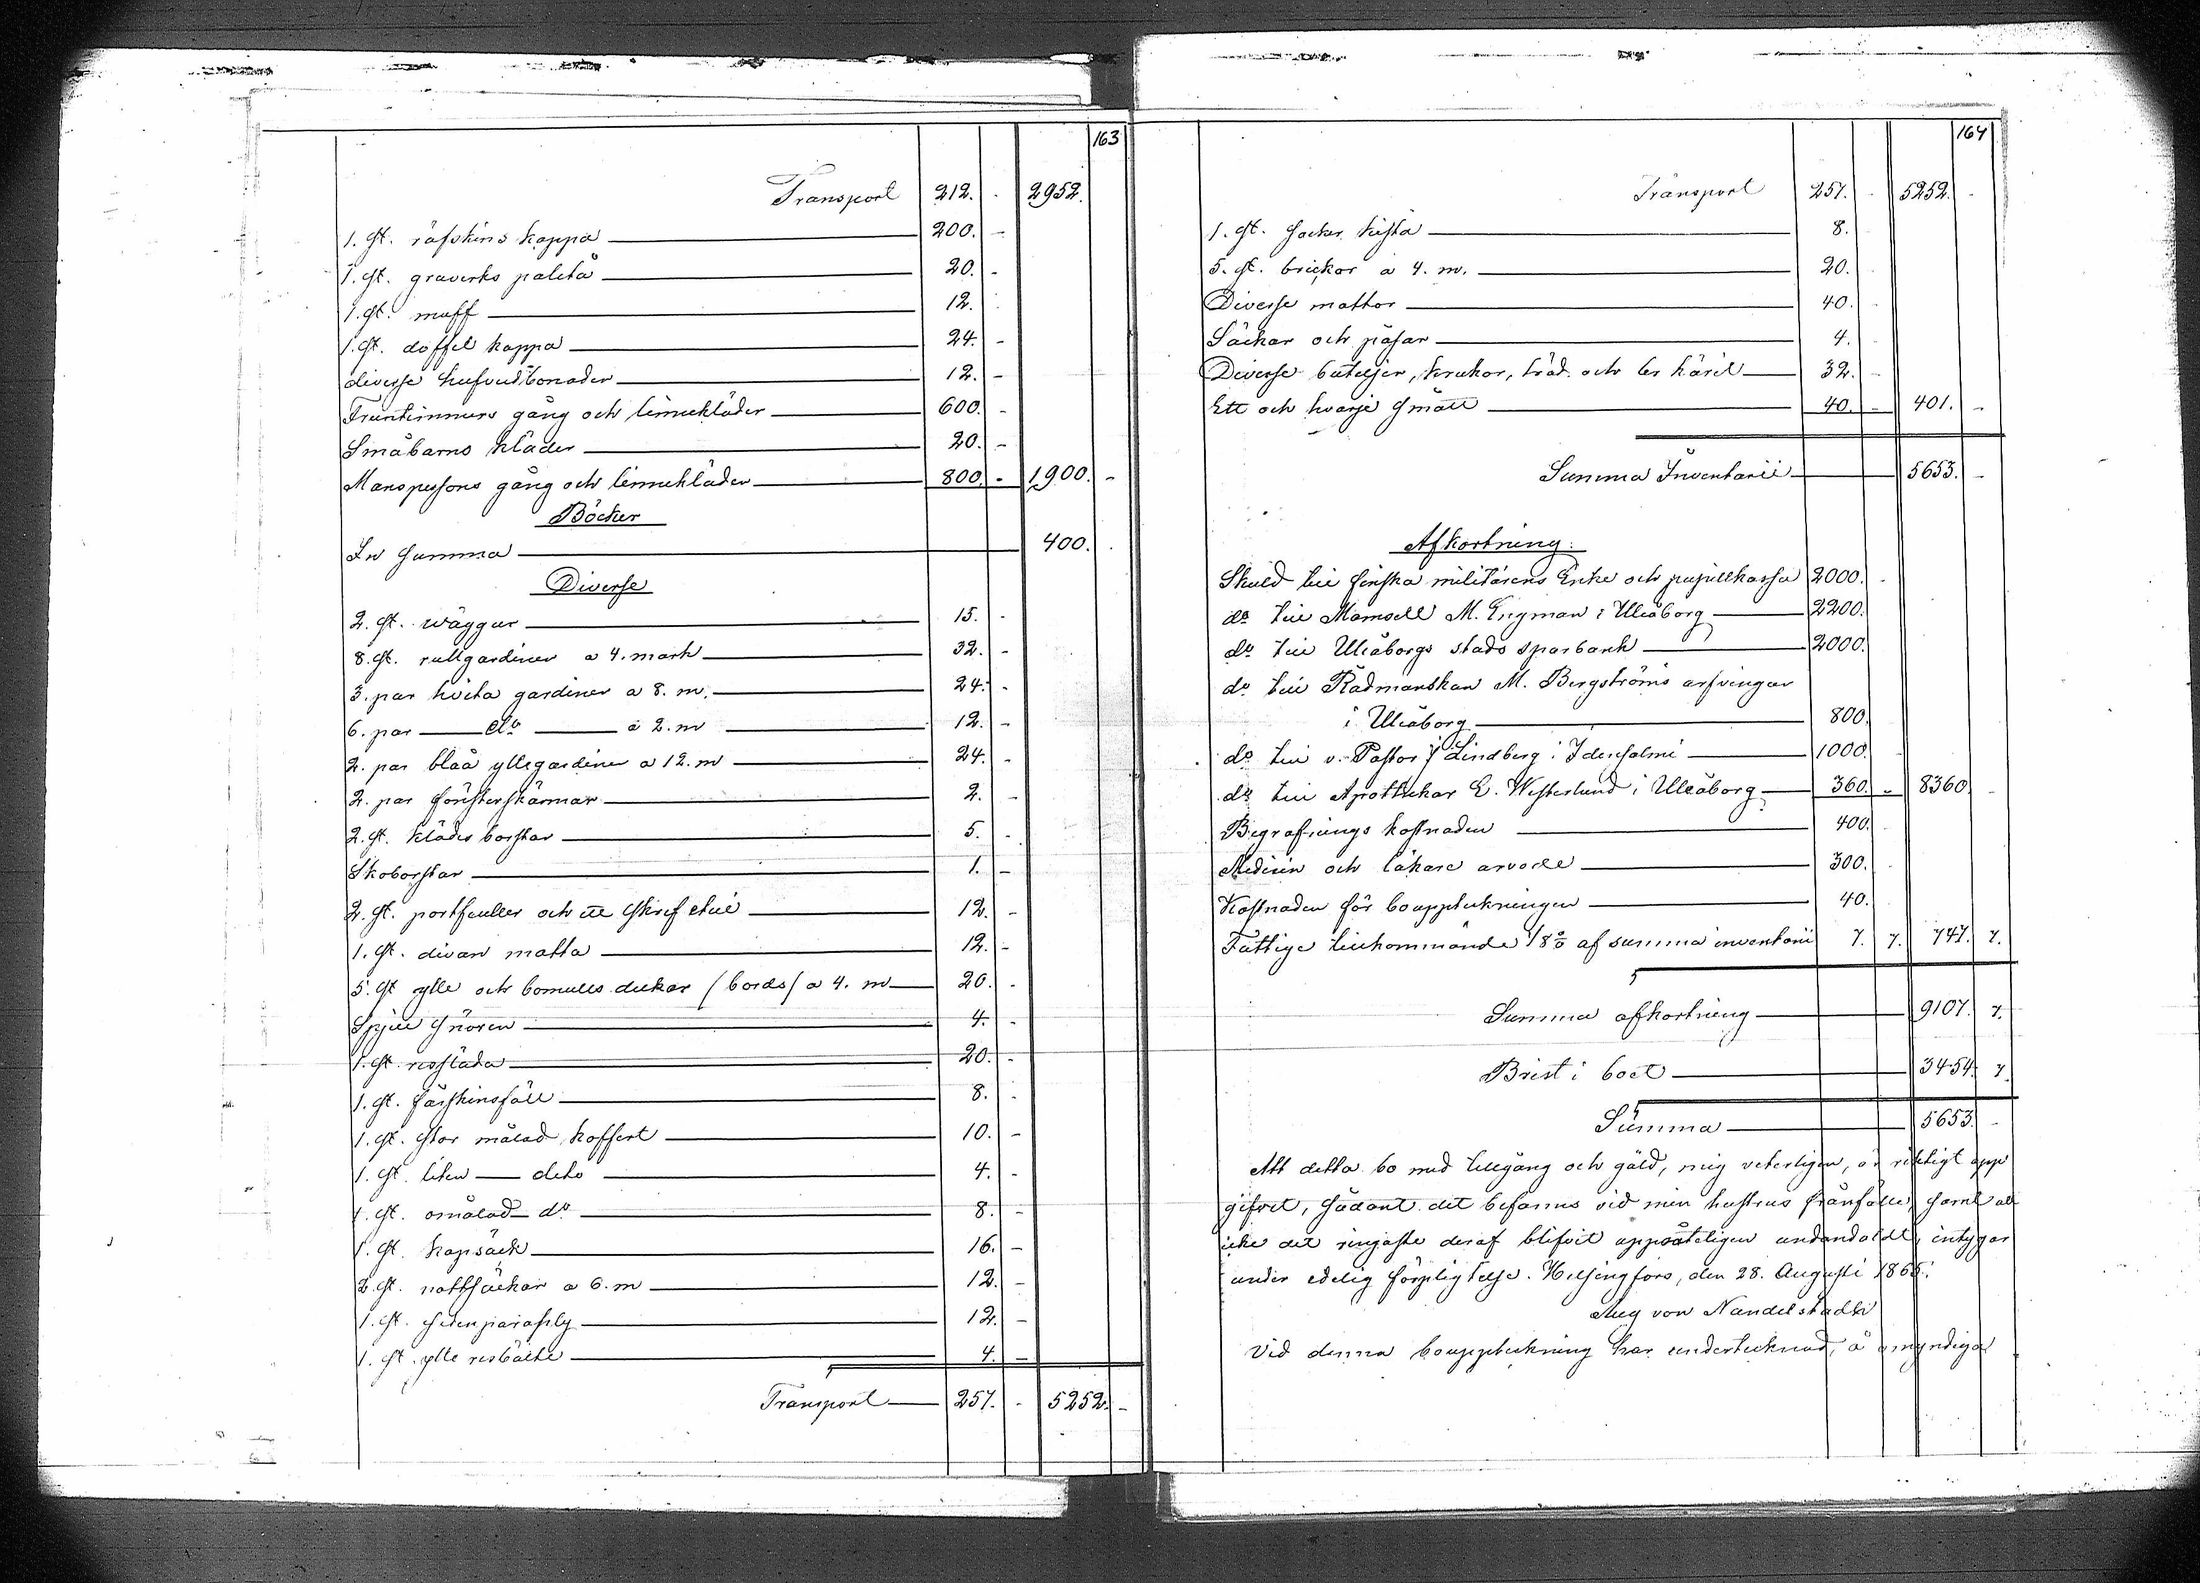 163
Transport 212. - 2952.
1. st. räfskins kappa 200. -
1. st. graverks paletå 20. -
1. st. muff 12.
1. st. döffel kappa 24. -
diverse hufvudbonader 12. -
Fruntimmers gång och linnekläder 600. -
Småbarns kläder 20. -
Manspersons gång och linnekläder 800. - 1,900. -
Böcker
En summa 400.
Diverse
2. st. wäggur 15. -
8. st. rullgardiner a 4. mark 32. -
3. par hvita gardiner a 8. m. 24. -
6. par do a 2. m 12. -
2. par blåa yllegardiner a 12. m 24. -
2. par fönsterskärmar 2. -
2. st. kläder borstar 5. -
Skoborstar 1. -
2. st. portfeuller och ett skrif etui 12. -
1. st. divan matta 12. -
5. st ylle och bomulls dukar (bords) a 4. m 20. -
Spjäll snören 4. -
1. st. resläda 20. -
1. st. fårskinsfäll 8. -
1. st. stor målad koffert 10. -
1. st. liten deto 4. -
1. st. omålad do 8. -
1. st. kapsäck 16. -
2. st. nattsäckar a 6. m 12. -
1. st. sidenparaply 12. -
1. st. ylle resbälte 4. -
Transport 257. - 5252. -
164
Transport 257. - 5252. -
1. st. socker kista 8. -
5. st. brickor a 4. m. 20. -
Diverse mattor 40. -
Säckar och påsar 4. -
Diverse buteljer, krukor, träd och ler käril 32. -
Ett och hvarje smått 40. - 401. -
Summa Inventarii 5653. -
Afkortning:
Skuld till finska militärens Enke och pupillkassa 2000. -
do till Mamsell M. Engman i Uleåborg 2200.
do till Uleåborgs stads sparbank 2000.
do till Rådmanskan M. Bergströms arfvingar
i Uleåborg 800.
do till v. Pastor J Lindberg i Idensalmi 1000.
do till Apothekar E. Westerlund i Uleåborg 360. - 8360. -
Begrafnings kostnaden 400.
Medicin och läkare arvode 300.
Kostnaden för bouppteckningen 40.
Fattige tillkommande 1/8 % af summa inventarii 7. 7. 747. 7.
Summa afkortning 9107. 7.
Brist i boet 3454. 7.
Summa 5653. -
Att detta bo med tillgång och gäld, mig veterligen, är riktigt upp
gifvet, sådant det befanns vid min hustrus frånfälle, samt att
icke det ringaste deraf blifvit uppsåteligen undandoldt, intygar
under edelig förpligtelse. Helsingfors, den 28. Augusti 1865.
Aug von Nandelstadh
Vid denna bouppteckning har undertecknad, å omyndiga